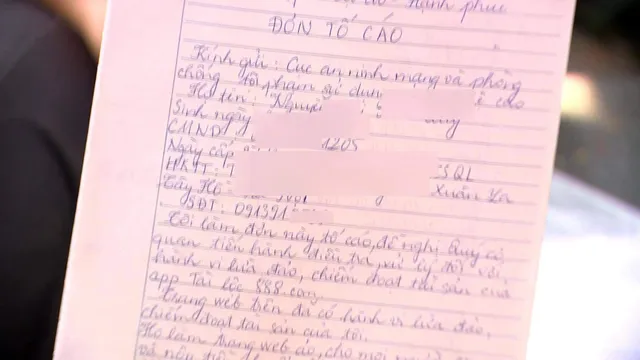 hạnh phúc
ĐƠN TỐ CÁO
Kính gửi: Cục an ninh mạng và phòng
chống tội phạm sử dụng cao
Họ tên: Nguyễ
Sinh ngày
CMND 1205
Ngày cấp
HKTT: SQL
Tây Hồ Xuân La
SĐT: 091391
Tôi làm đơn này tố cáo, đề nghị Quý cơ
quan tiến hành điều tra, xử lý đối với
hành vi lừa đảo, chiếm đoạt tài sản của
app Tài lộc 888.com
Trang web trên đã có hành vi lừa đảo,
chiếm đoạt tài sản của tôi.
Họ làm trang web ảo, cho mọi